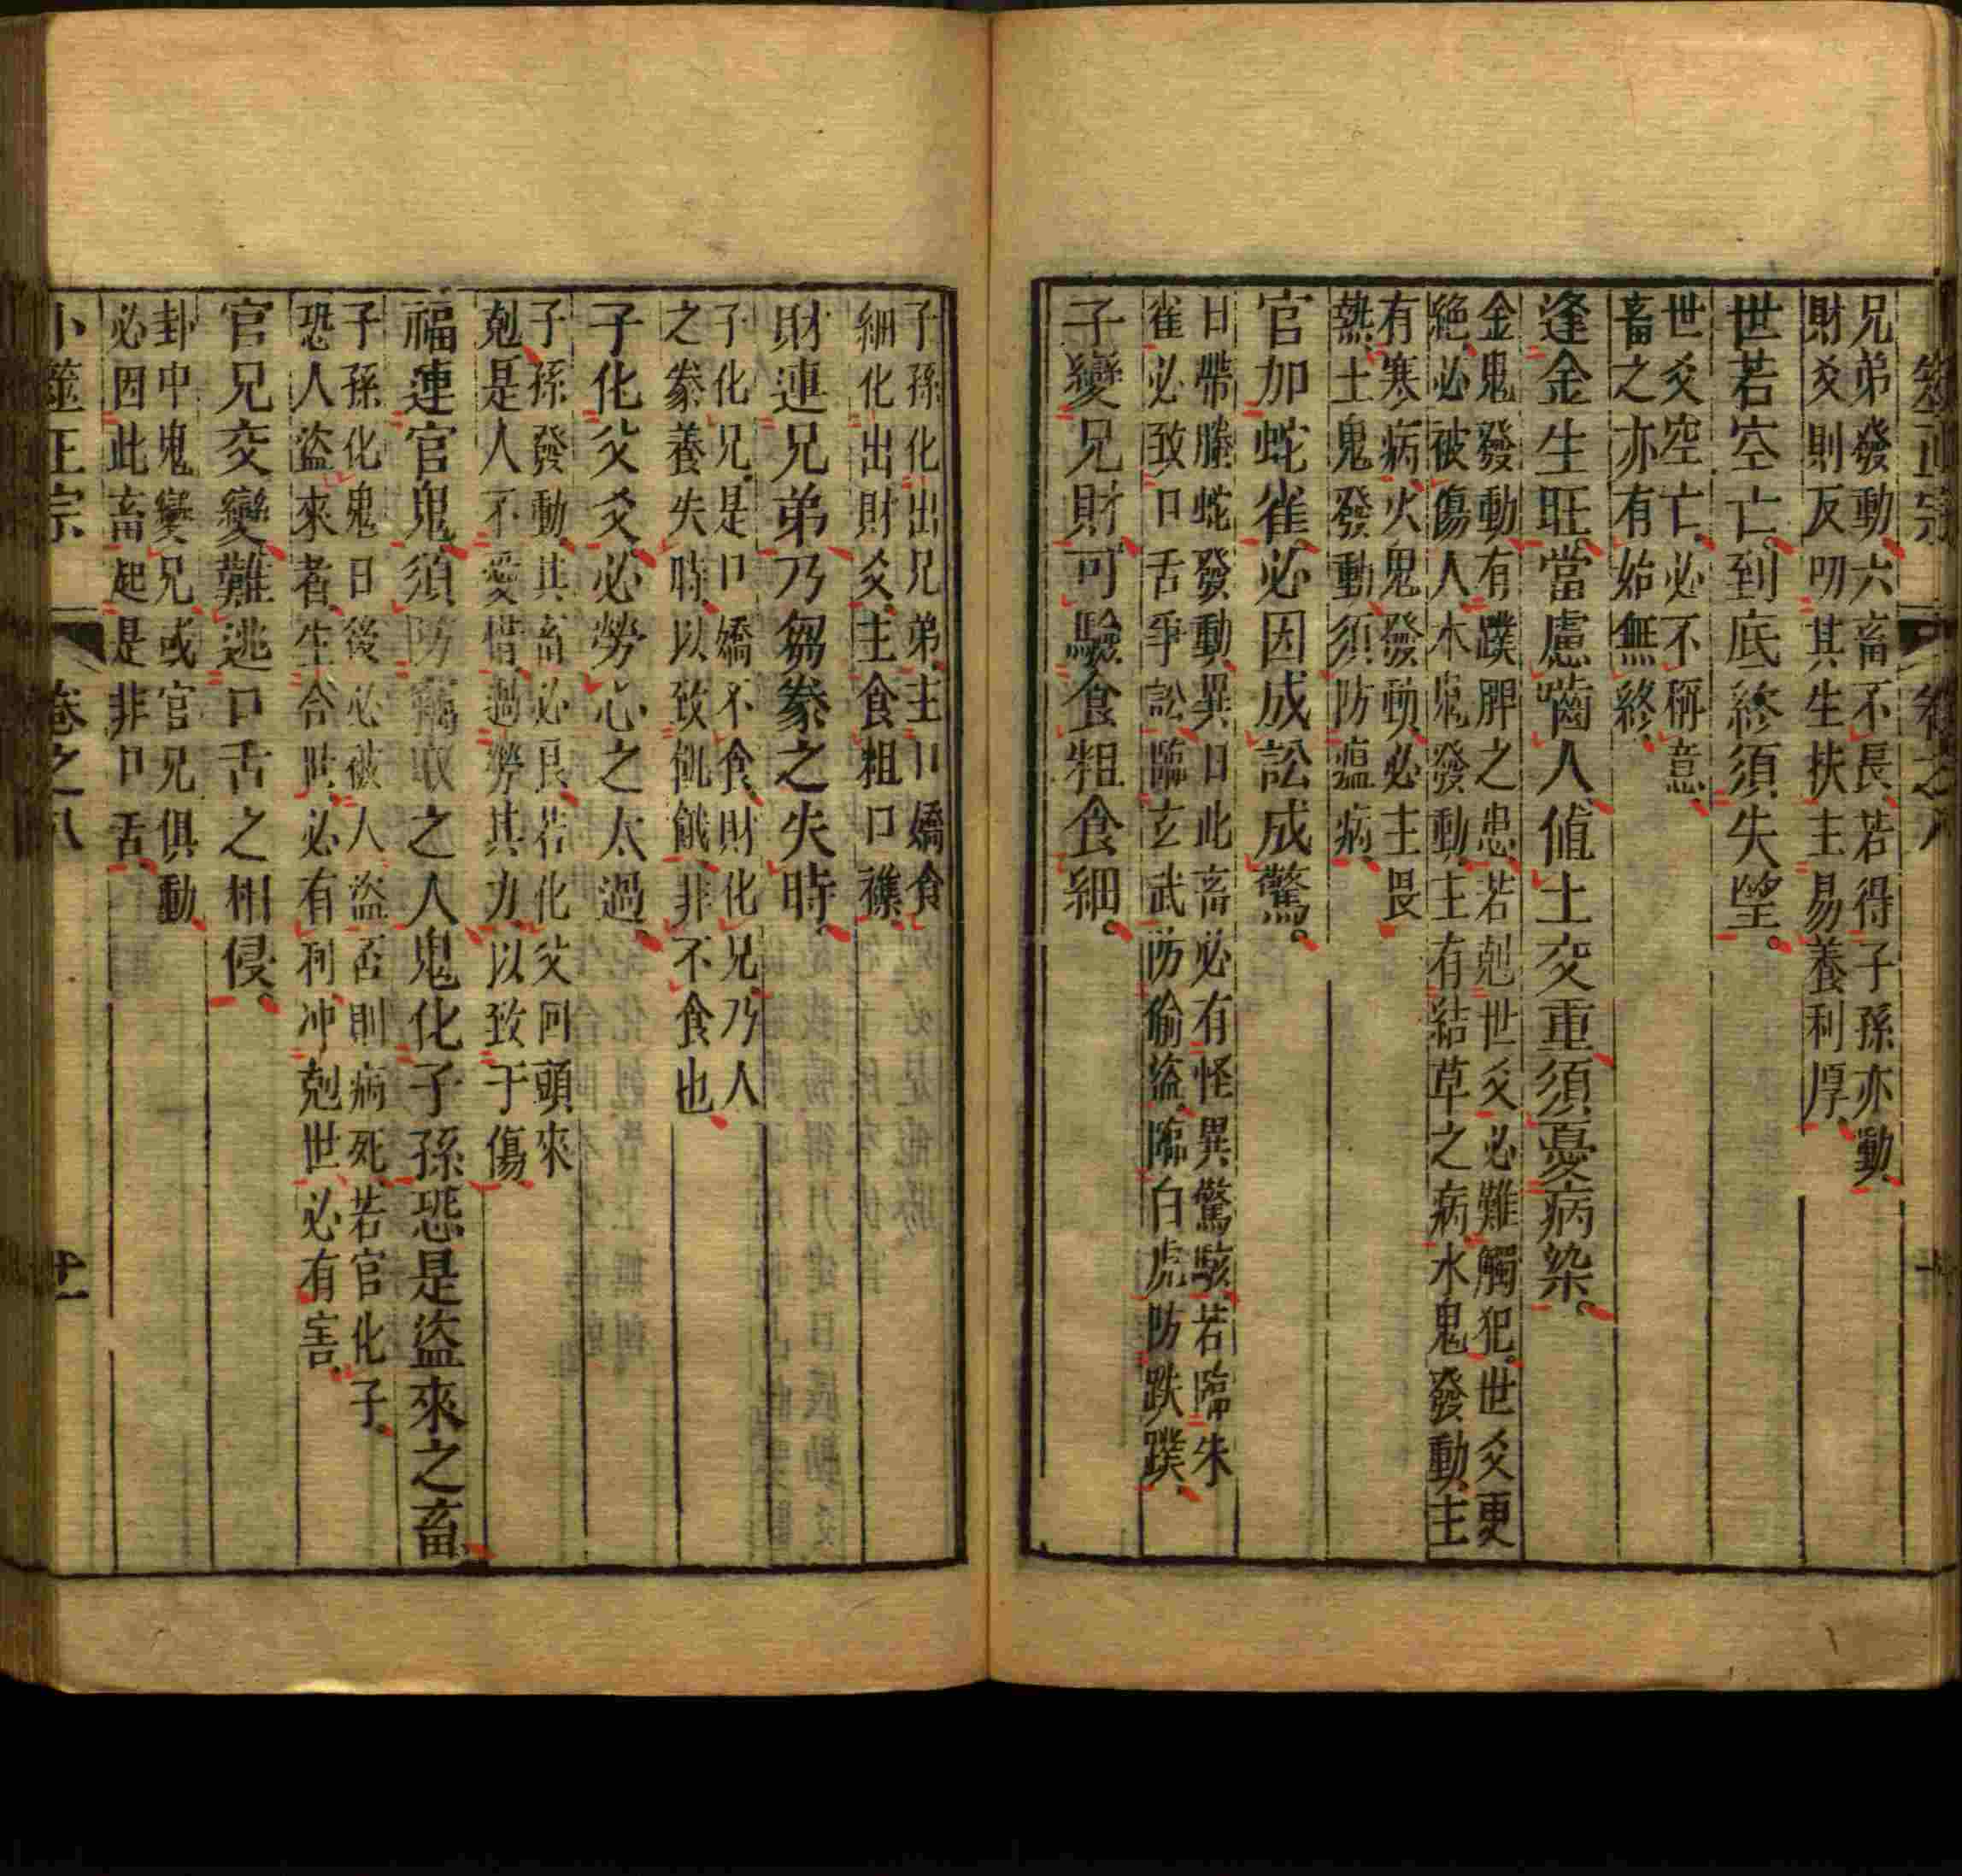 筮正宗 卷之八
兄弟發動六畜不長若得子孫亦動
財爻則反叨其生扶主易養利厚
世若空亡到底終須失望
世爻空亡必不稱意
畜之亦有始無終
逢金生旺當慮嚙人值土交重須憂病染
金鬼發動有蹼脚之患若剋世爻必難觸犯世爻更
絶必被傷人木鬼發動主有結草之病水鬼發動主
有寒病火鬼發動必主畏
熱土鬼發動須防瘟病
官加蛇雀必因成訟成驚
日帶螣蛇發動異日此畜必有怪異驚駭若臨朱
雀必致口舌爭訟臨玄武防偷盜臨白虎防跌蹼
子變兄財可驗食粗食細
子孫化出兄弟主口嬌食
細化出財爻主食粗口穕
財連兄弟乃芻豢之失時
子化兄是口嬌不食財化兄乃人
之豢養失時以致飢餓非不食也
子化父爻必勞心之太過
子孫發動其畜必良若化父回頭來
剋是人不愛惜過勞其力以致于傷
福連官鬼須防竊取之人鬼化子孫恐是盜來之畜
子孫化鬼日後必被人盜否則病死若官化子
恐人盜來者生合世必有利冲剋世必有害
官兄交變難逃口舌之相侵
卦中鬼變兄或官兄俱動
必因此畜起是非口舌
卜筮正宗 卷之八 十一